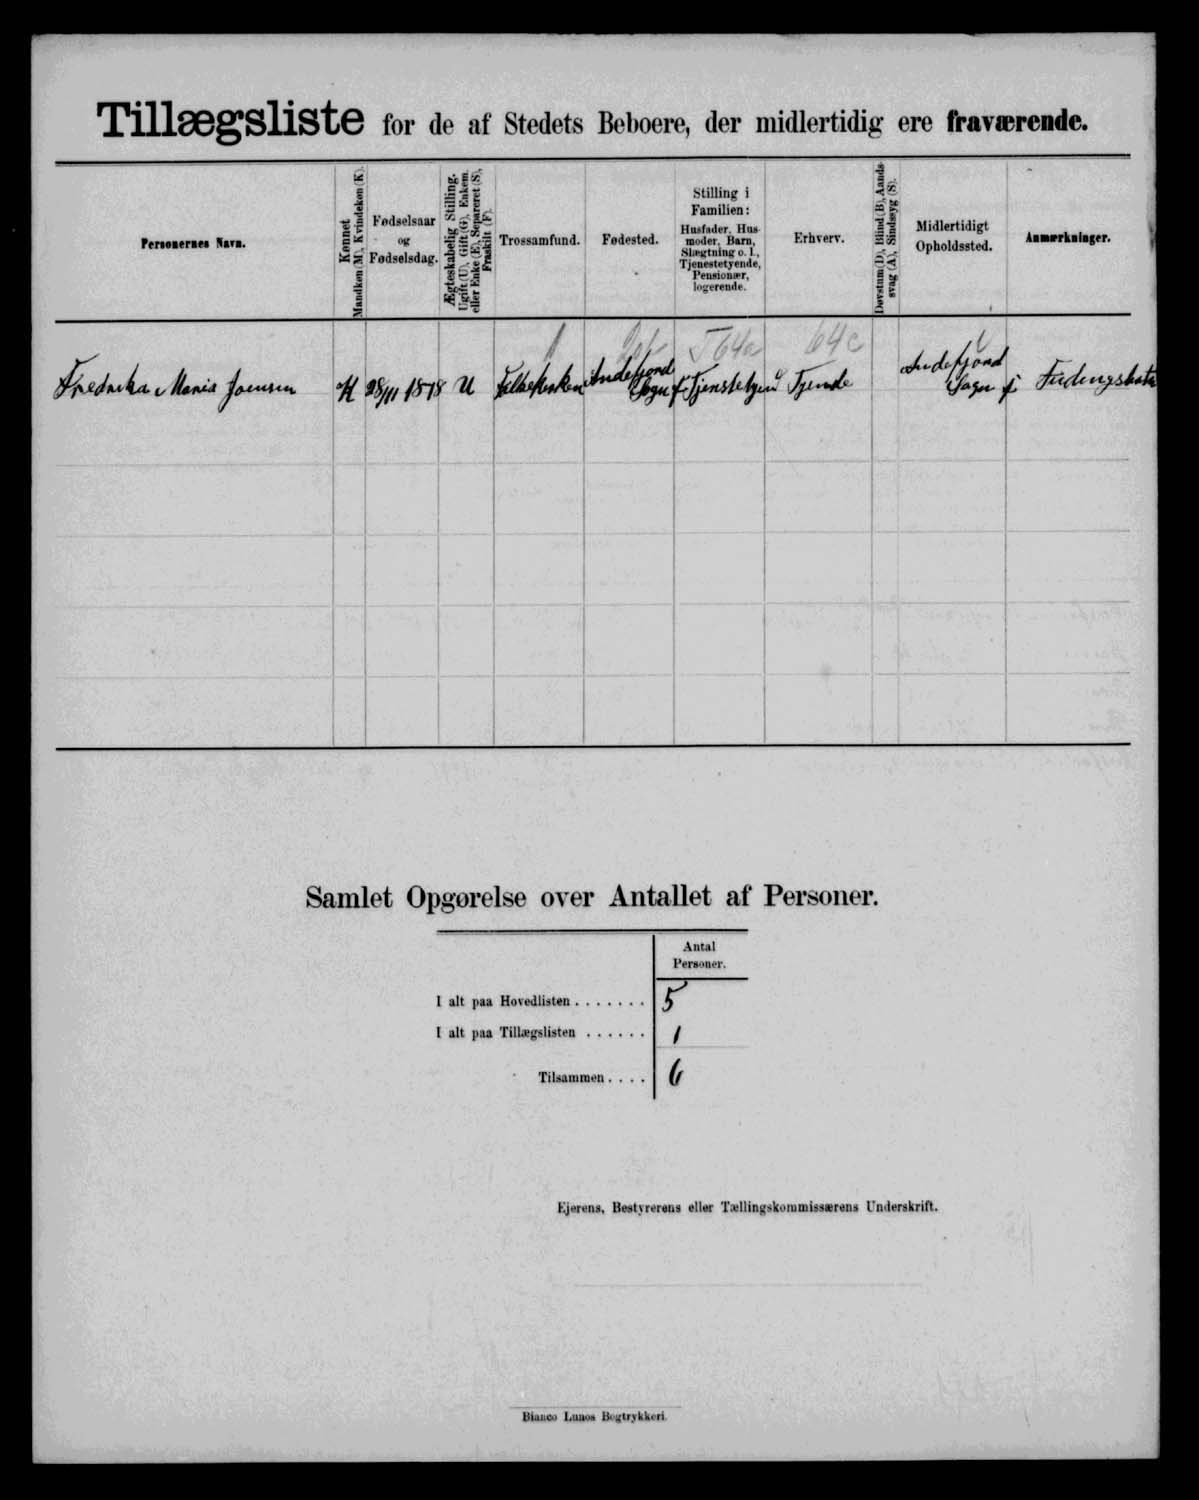 Tillægsliste for de af Stedets Beboere, der midlertidig ere fraværende.
Personernes Navn.
Kønnet
Mandkøn (M), Kvindekøn (K).
Fødselsaar
og
Fødselsdag.
Ægteskabelig Stilling.
Ugift (U), Gift (G), Enkem.
eller Enke (E), Separeret (S),
Fraskilt (F).
Trossamfund.
Fødested.
Stilling i
Familien:
Husfader, Hus-
moder, Barn,
Slægtning o. l.,
Tjenestetyende,
Pensionær,
logerende.
Erhverv.
Døvstum (D), Blind (B), Aands-
svag (A), Sindssyg (S).
Midlertidigt
Opholdssted.
Anmærkninger.
T64a
64c
Fredrika Maria Joensen
K
28/11 1878
U
Folkekirken
Andefjord
Sogn
Tjenstetyend
Tjende
Andefjord
Sogn
Samlet Opgørelse over Antallet af Personer.
Antal
Personer.
I alt paa Hovedlisten ....... 5
I alt paa Tillægslisten ...... 1
Tilsammen .... 6
Ejerens, Bestyrerens eller Tællingskommissærens Underskrift.
Bianco Lunos Bogtrykkeri.